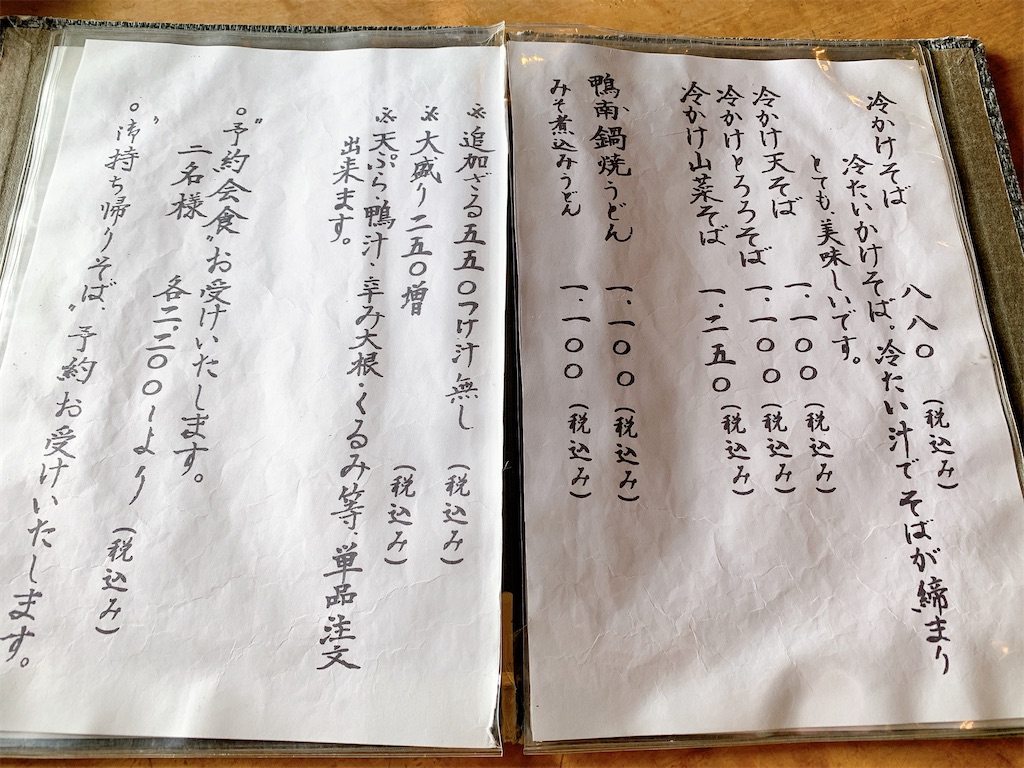 冷かけそば 八八〇(税込み)
冷たいかけそば。冷たい汁でそばが締まり
とても美味しいです。
冷かけ天そば 一.一〇〇(税込み)
冷かけとろろそば 一.一〇〇(税込み)
冷かけ山菜そば 一.二五〇(税込み)
鴨南鍋焼うどん 一.一〇〇(税込み)
みそ煮込みうどん 一.一〇〇(税込み)
※追加ざる五五〇つけ汁無し(税込み)
※大盛り二五〇増(税込み)
※天ぷら・鴨汁・辛み大根・くるみ等、単品注文
出来ます。
○予約会食〃お受けいたします。
二名様 各二.二〇〇〜より(税込み)
○〃御持ち帰りそば、〃予約お受けいたします。